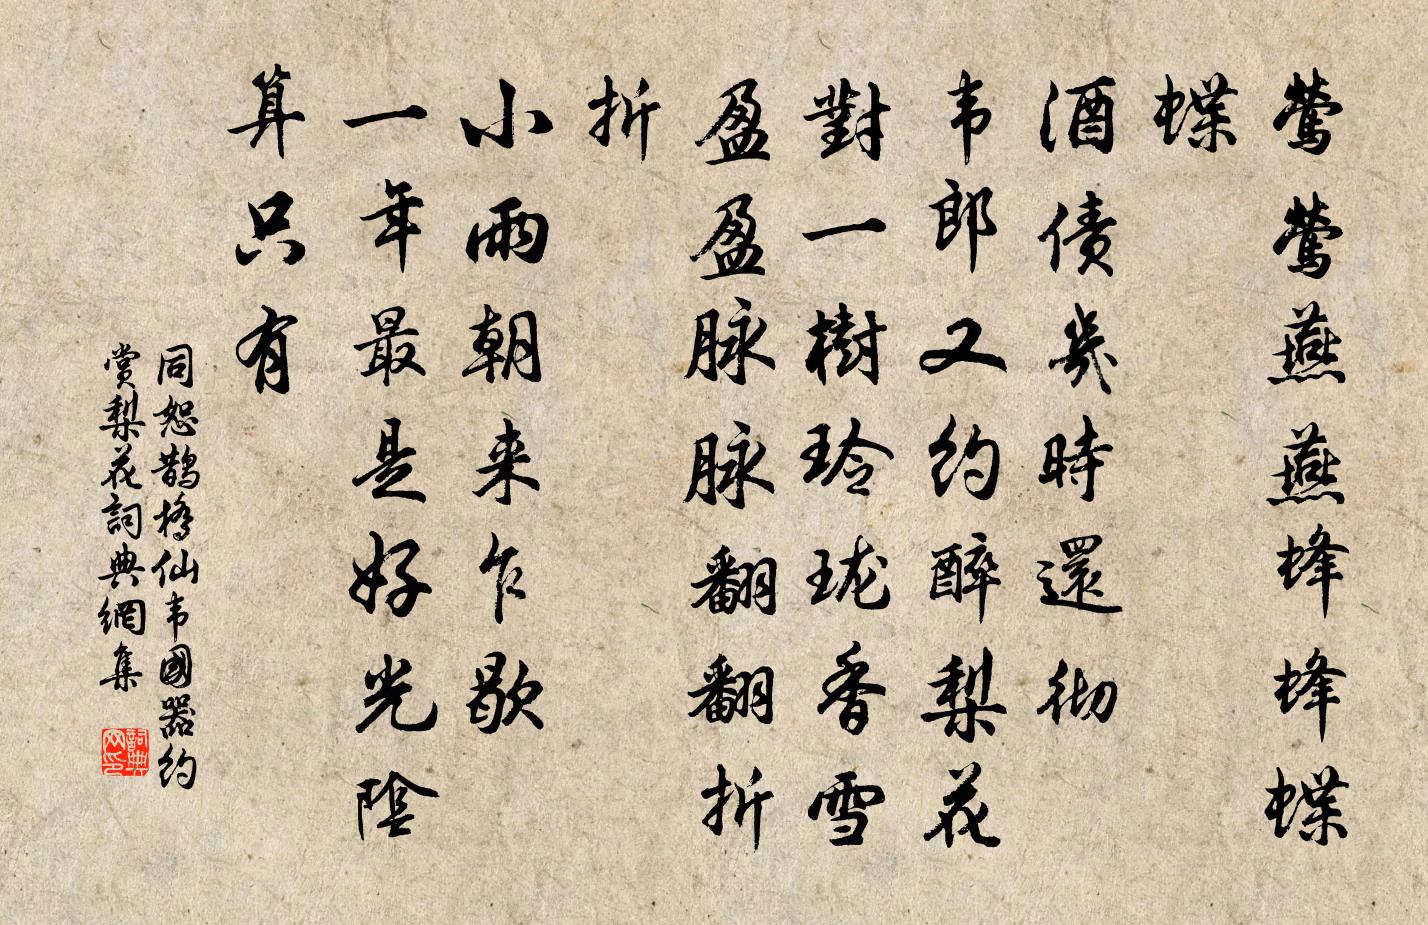 莺莺燕燕蜂蜂蝶
蝶
酒债幾時還彻
韦郎又约醉梨花
對一樹玲珑香雪
盈盈脉脉翻翻折
折
小雨朝来乍歇
一年最是好光陰
算只有
同恕鹊橋仙韦國器约
赏梨花詞典網集
詞典
网印